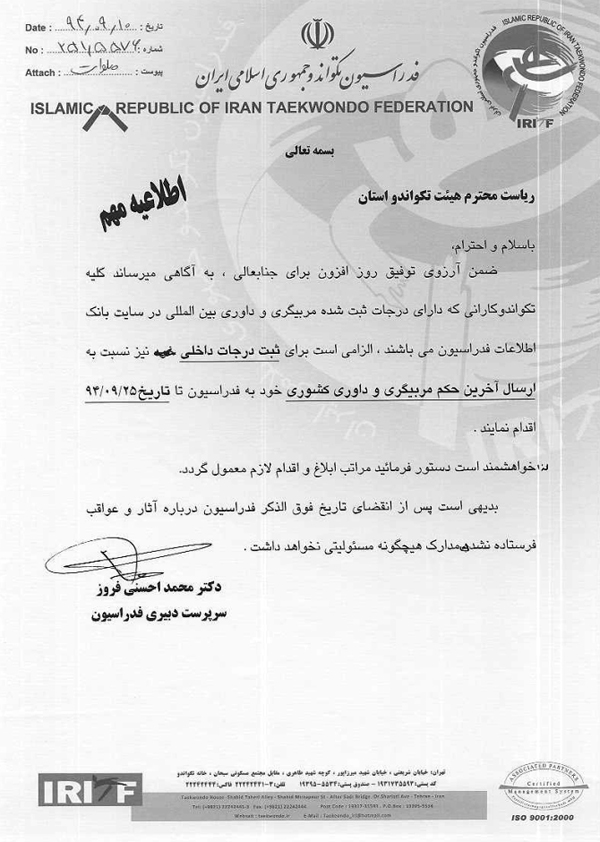 Date : ۹۴,۰۹,۱۰ : تاریخ
No : : شماره
Attach : صلوات : پیوست
فدراسیون تکواندو جمهوری اسلامی ایران
ISLAMIC REPUBLIC OF IRAN TAEKWONDO FEDERATION
ISLAMIC REPUBLIC OF IRAN TAEKWONDO FEDERATION
IRITF
بسمه تعالی
اطلاعیه مهم
ریاست محترم هیئت تکواندو استان
باسلام و احترام،
ضمن آرزوی توفیق روز افزون برای جنابعالی ، به آگاهی میرساند کلیه
تکواندوکارانی که دارای درجات ثبت شده مربیگری و داوری بین المللی در سایت بانک
اطلاعات فدراسیون می باشند ، الزامی است برای ثبت درجات داخلی نیز نسبت به
ارسال آخرین حکم مربیگری و داوری کشوری خود به فدراسیون تا تاریخ ۹۴/۰۹/۲۵
اقدام نمایند .
خواهشمند است دستور فرمائید مراتب ابلاغ و اقدام لازم معمول گردد.
بدیهی است پس از انقضای تاریخ فوق الذکر فدراسیون درباره آثار و عواقب
فرستاده نشدن مدارک هیچگونه مسئولیتی نخواهد داشت .
دکتر محمد احسنی فروز
سرپرست دبیری فدراسیون
IRITF
تهران: خیابان شریعتی ، خیابان شهید میرزاپور ، کوچه شهید طاهری ، مقابل مجتمع مسکونی سبحان ، خانه تکواندو
کد پستی: ۱۹۳۱۷۳۵۵۹۱ - صندوق پستی: ۵۵۳۴-۱۹۳۹۵
Website : taekwondo.ir
ASSOCIATED PARTNERS
Certified
Management System
ISO 9001:2000